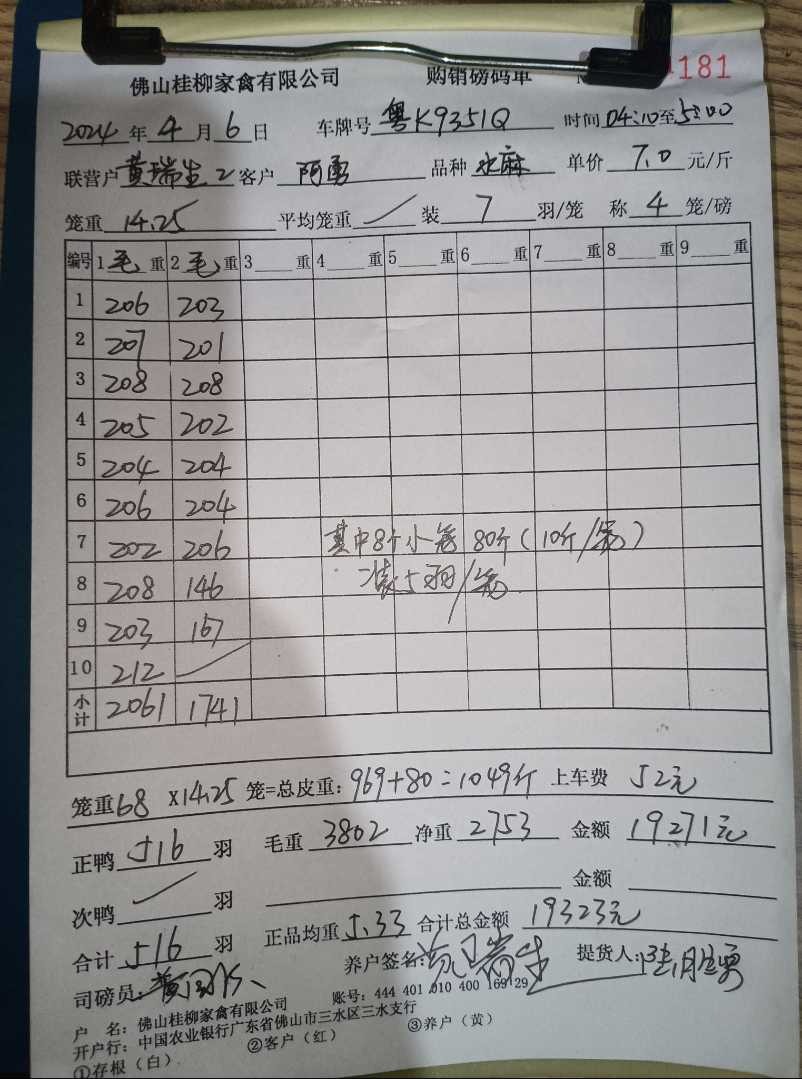 佛山桂柳家禽有限公司 购销磅码单 181
2024年4月6日 车牌号 粤K9351Q 时间 04:10至5:00
联营户 黄瑞生2 客户 阿勇 品种 水麻 单价 7.0 元/斤
笼重 14.25 平均笼重 ∕ 装 7 羽/笼 称 4 笼/磅
编号 1 毛 重 2 毛 重 3 重 4 重 5 重 6 重 7 重 8 重 9 重
1 206 203
2 207 201
3 208 208
4 205 202
5 204 204
6 206 204
7 202 206 其中8个小笼 80斤(10斤/笼)
8 208 146 装5羽/笼
9 203 167
10 212 ∕
小计 2061 1741
笼重68 X14.25 笼=总皮重: 969+80=1049斤 上车费 52元
正鸭 516 羽 毛重 3802 净重 2753 金额 19271元
次鸭 ∕ 羽 金额
合计 516 羽 正品均重 5.33 合计总金额 19323元
司磅员: 养户签名: 提货人:
户 名: 佛山桂柳家禽有限公司 账号: 444 401 010 400 16929
开户行: 中国农业银行广东省佛山市三水区三水支行
①存根(白) ②客户(红) ③养户(黄)